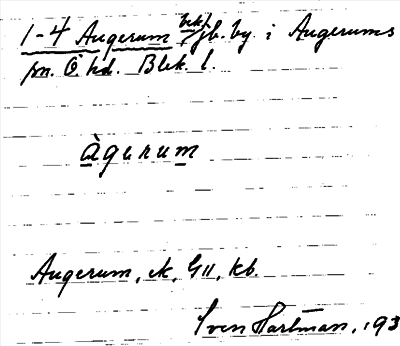 1-4 Augerum jb. by. i Augerums
sn. Ö. hd. Blek. l.
àgerum
Augerum, ek, GII, kb.
Sven Hartman, 193